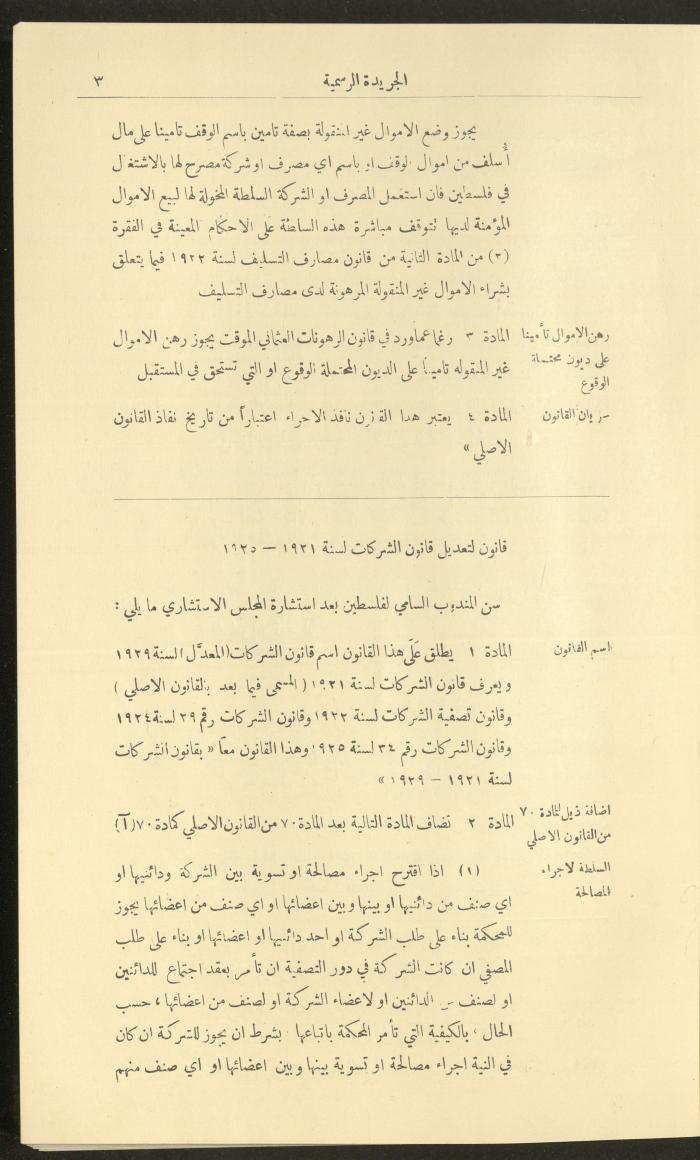 الجريدة الرسمية
٣
يجوز وضع الاموال غير المنقولة بصفة تامين باسم الوقف تامينا على مال
أُسلف من اموال الوقف او باسم اي مصرف او شركة مصرح لها بالاشتغال
في فلسطين فان استعمل المصرف او الشركة السلطة المخولة لها لبيع الاموال
المؤمنة لديها تتوقف مباشرة هذه السلطة على الاحكام المعينة في الفقرة
(٣) من المادة الثانية من قانون مصارف التسليف لسنة ١٩٢٢ فيما يتعلق
بشراء الاموال غير المنقولة المرهونة لدى مصارف التسليف
رهن الاموال تأمينا
على ديون محتملة
الوقوع
المادة ٣ رغما عما ورد في قانون الرهونات العثماني الموقت يجوز رهن الاموال
غير المنقوله تامينا على الديون المحتملة الوقوع او التي تستحق في المستقبل
سريان القانون
المادة ٤ يعتبر هذا القانون نافذ الاجراء اعتباراً من تاريخ نفاذ القانون
الاصلي »
قانون لتعديل قانون الشركات لسنة ١٩٢١ — ١٩٢٥
سن المندوب السامي لفلسطين بعد استشارة المجلس الاستشاري ما يلي :
اسم القانون
المادة ١ يطلق عَلَى هذا القانون اسم قانون الشركات (المعدَّل) لسنة ١٩٢٩
ويعرف قانون الشركات لسنة ١٩٢١ ( المسمى فيما بعد بالقانون الاصلي )
وقانون تصفية الشركات لسنة ١٩٢٢ وقانون الشركات رقم ٢٩ لسنة ١٩٢٤
وقانون الشركات رقم ٣٤ لسنة ١٩٢٥ وهذا القانون معاً « بقانون الشركات
لسنة ١٩٢١ – ١٩٢٩ »
اضافة ذيل لمادة ٧٠
من القانون الاصلي
المادة ٢ تضاف المادة التالية بعد المادة ٧٠ من القانون الاصلي كمادة ٧٠ (آ)
السلطة لاجراء
المصالحة
(١) اذا اقترح اجراء مصالحة او تسوية بين الشركة ودائنيها او
اي صنف من دائنيها او بينها وبين اعضائها او اي صنف من اعضائها يجوز
للمحكمة بناء على طلب الشركة او احد دائنيها او اعضائها او بناء على طلب
المصفي ان كانت الشركة في دور التصفية ان تأمر بعقد اجتماع للدائنين
او لصنف من الدائنين او لاعضاء الشركة او لصنف من اعضائها ، حسب
الحال ، بالكيفية التي تأمر المحكمة باتباعها بشرط ان يجوز للشركة ان كان
في النية اجراء مصالحة او تسوية بينها وبين اعضائها او اي صنف منهم